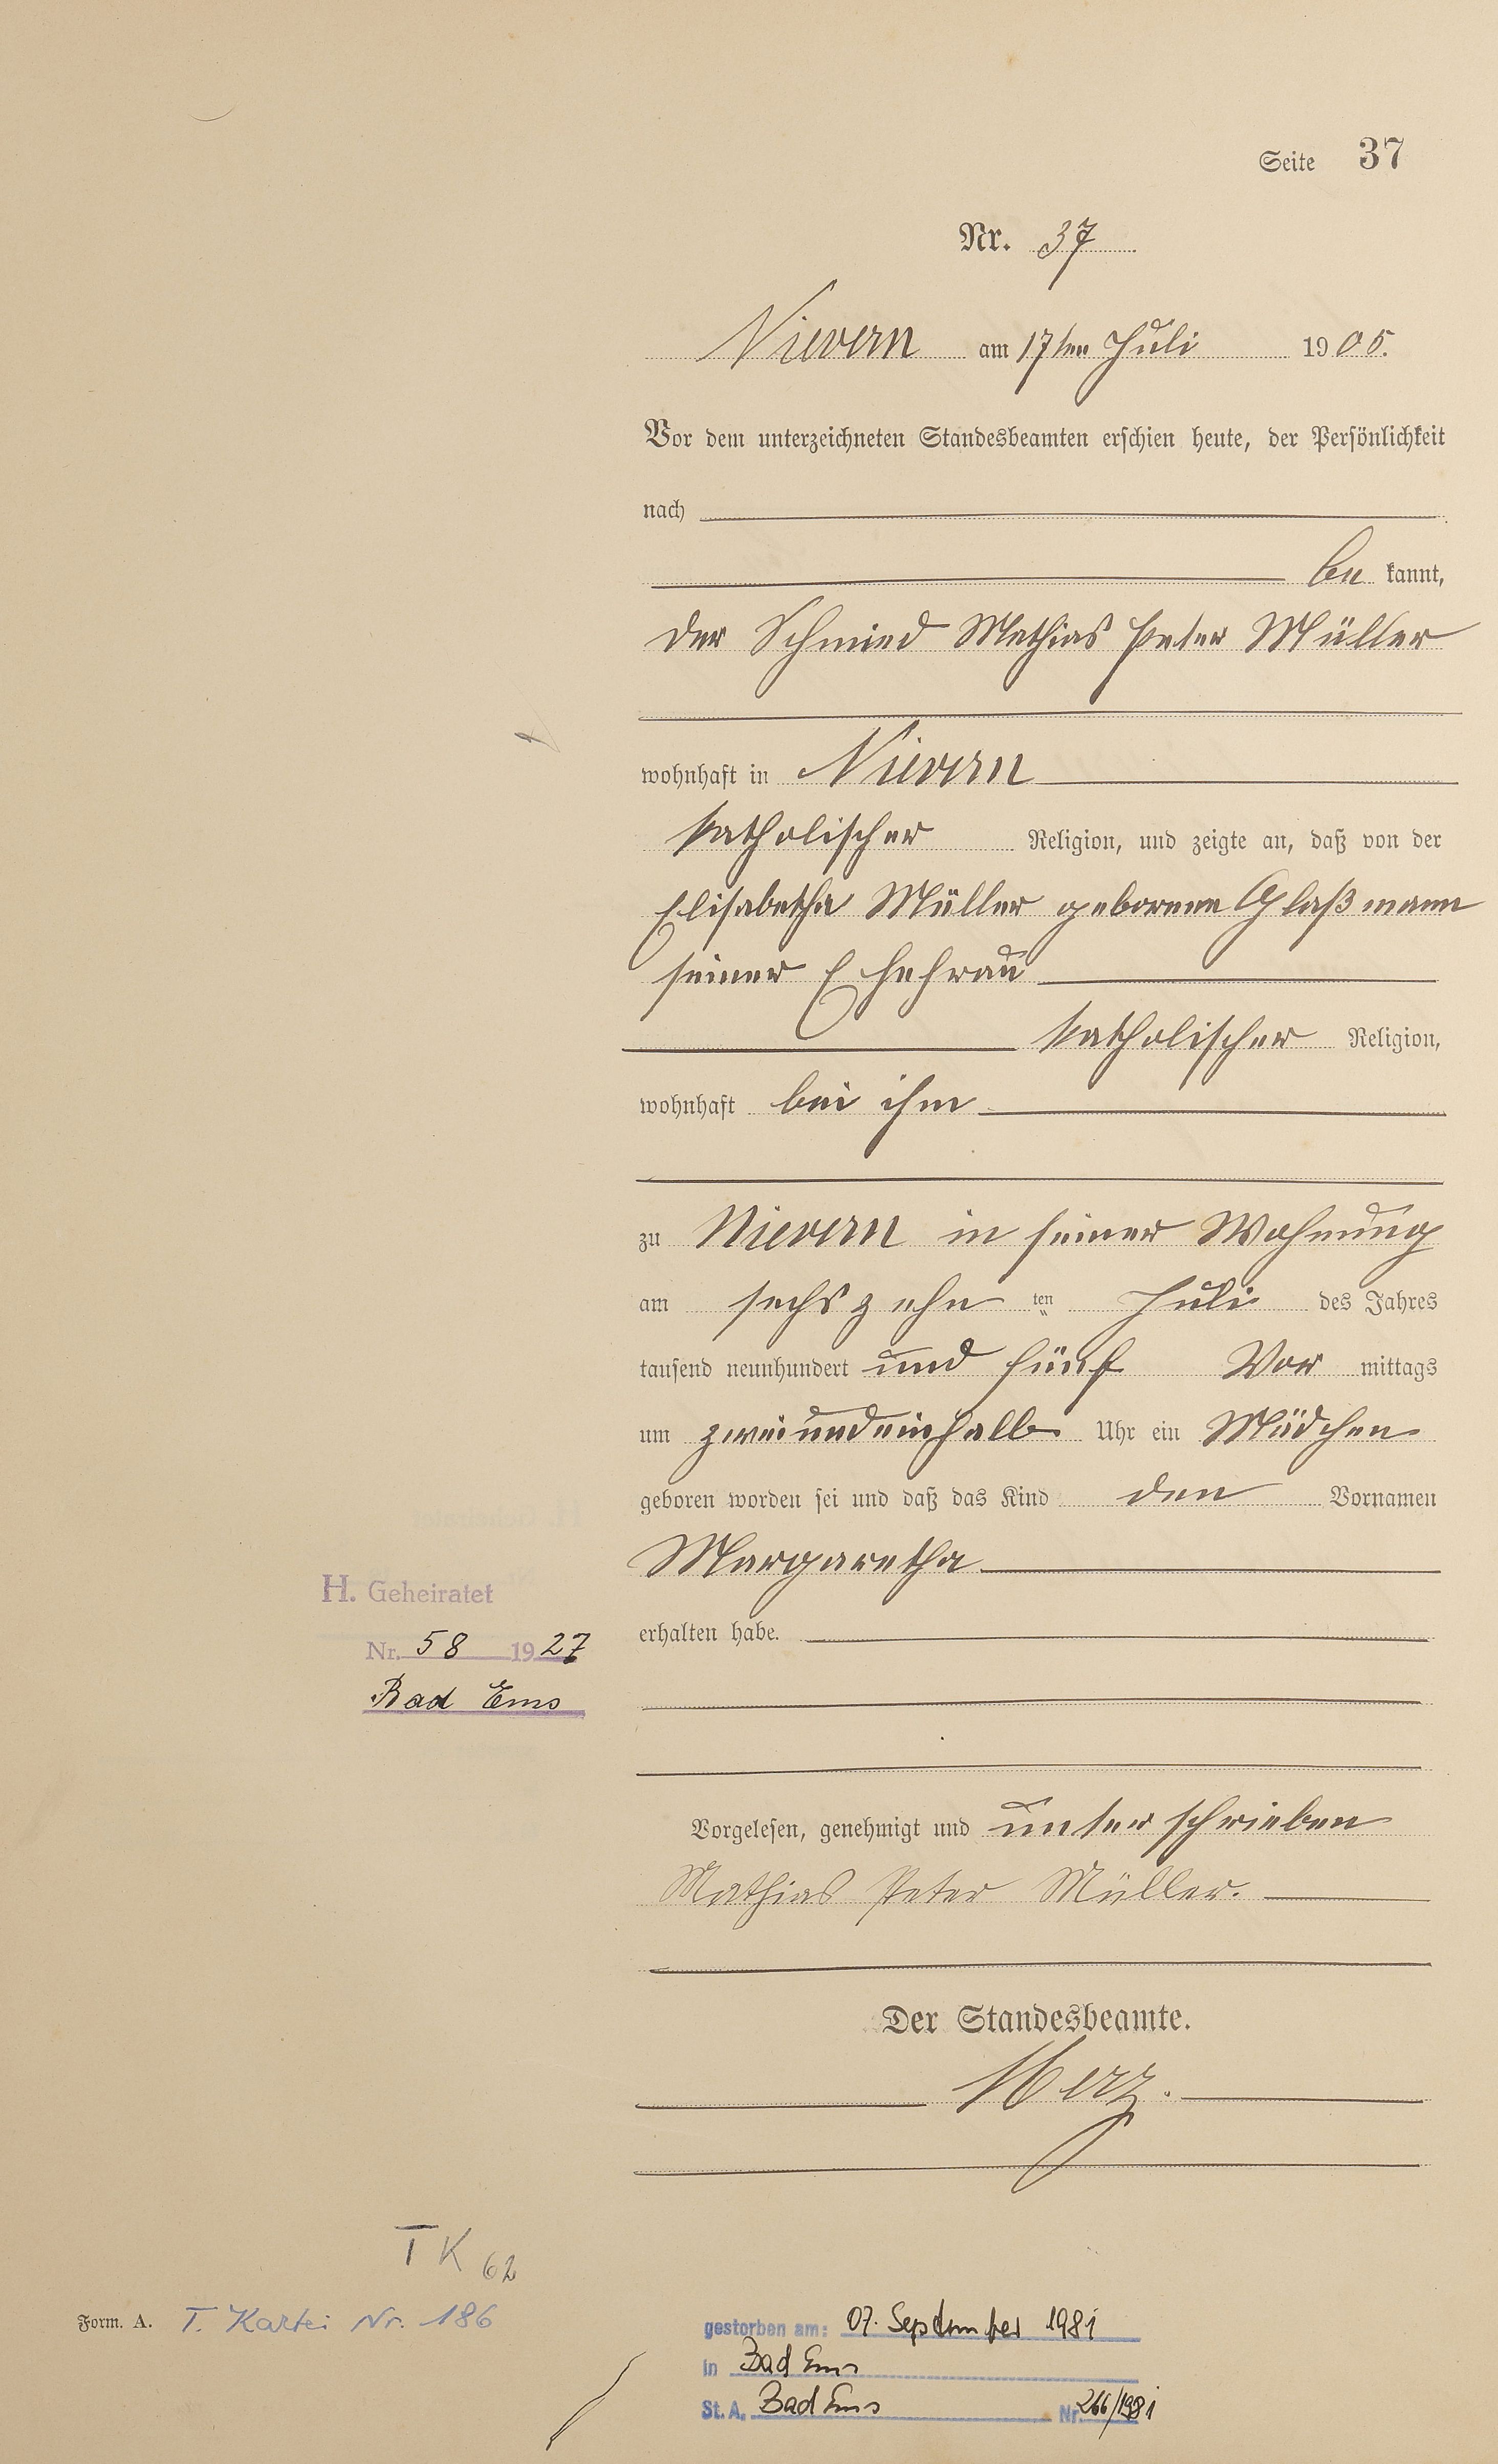 Seite 37
Nr. 37
Nievern am 17ten Juli 1905.
Vor dem unterzeichneten Standesbeamten erschien heute, der Persönlichkeit
nach
be kannt,
der Schmied Mathias Peter Müller
wohnhaft in Nievern
katholischer Religion, und zeigte an, daß von der
Elisabetha Müller geborene Glaßmann
seiner Ehefrau
katholischer Religion,
wohnhaft bei ihm
zu Nievern in seiner Wohnung
am sechszehn ten Juli des Jahres
tausend neunhundert und fünf Vor mittags
um zweiundeinhalb Uhr ein Mädchen
geboren worden sei und daß das Kind den Vornamen
Margaretha
erhalten habe.
H. Geheiratet
Nr. 58 1927
Bad Ems
Vorgelesen, genehmigt und unterschrieben
Mathias Peter Müller.
Der Standesbeamte.
Merz.
TK 62
Form. A. T. Kartei Nr. 186
gestorben am: 07. September 1981
in Bad Ems
St. A. Bad Ems Nr. 266/1981